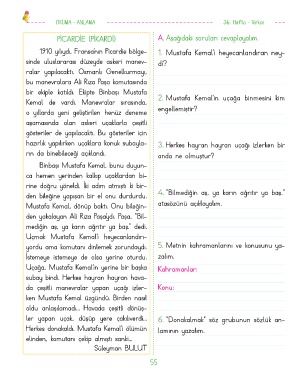 OKUMA - ANLAMA
36. Hafta - Türkçe
PİCARDİE (PİKARDİ)
1910 yılıydı. Fransa'nın Picardie bölge-
sinde uluslararası düzeyde askeri manev-
ralar yapılacaktı. Osmanlı Genelkurmayı,
bu manevralara Ali Rıza Paşa komutasında
bir ekiple katıldı. Ekipte Binbaşı Mustafa
Kemal de vardı. Manevralar sırasında,
o yıllarda yeni geliştirilen henüz deneme
aşamasında olan askeri uçaklarla çeşitli
gösteriler de yapılacaktı. Bu gösteriler için
hazırlık yapılırken uçaklara konuk subayla-
rın da binebileceği açıklandı.
Binbaşı Mustafa Kemal, bunu duyun-
ca hemen yerinden kalkıp uçaklardan bi-
rine doğru yöneldi. İki adım atmıştı ki bir-
den bileğine yapışan bir el onu durdurdu.
Mustafa Kemal, dönüp baktı. Onu bileğin-
den yakalayan Ali Rıza Paşaydı. Paşa, "Bil-
mediğin aş, ya karın ağrıtır ya baş." dedi.
Uçmak Mustafa Kemal'i heyecanlandırı-
yordu ama komutanı dinlemek zorundaydı.
İstemeye istemeye de olsa yerine oturdu.
Uçağa, Mustafa Kemal'in yerine bir başka
subay bindi. Herkes hayran hayran hava-
da çeşitli manevralar yapan uçağı izler-
ken Mustafa Kemal üzgündü. Birden nasıl
oldu anlaşılamadı... Havada çeşitli dönüş-
ler yapan uçak, düşüp yere çakılıverdi...
Herkes donakaldı. Mustafa Kemal'i ölümün
elinden, komutanı çekip almıştı sanki...
Süleyman BULUT
A. Aşağıdaki soruları cevaplayalım.
1. Mustafa Kemal'i heyecanlandıran ney-
di?
2. Mustafa Kemal'in uçağa binmesini kim
engellemiştir?
3. Herkes hayran hayran uçağı izlerken bir
anda ne olmuştur?
4. "Bilmediğin aş, ya karın ağrıtır ya baş."
atasözünü açıklayalım.
5. Metnin kahramanlarını ve konusunu ya-
zalım.
Kahramanlar:
Konu:
6. "Donakalmak" söz grubunun sözlük an-
lamının yazalım.
55